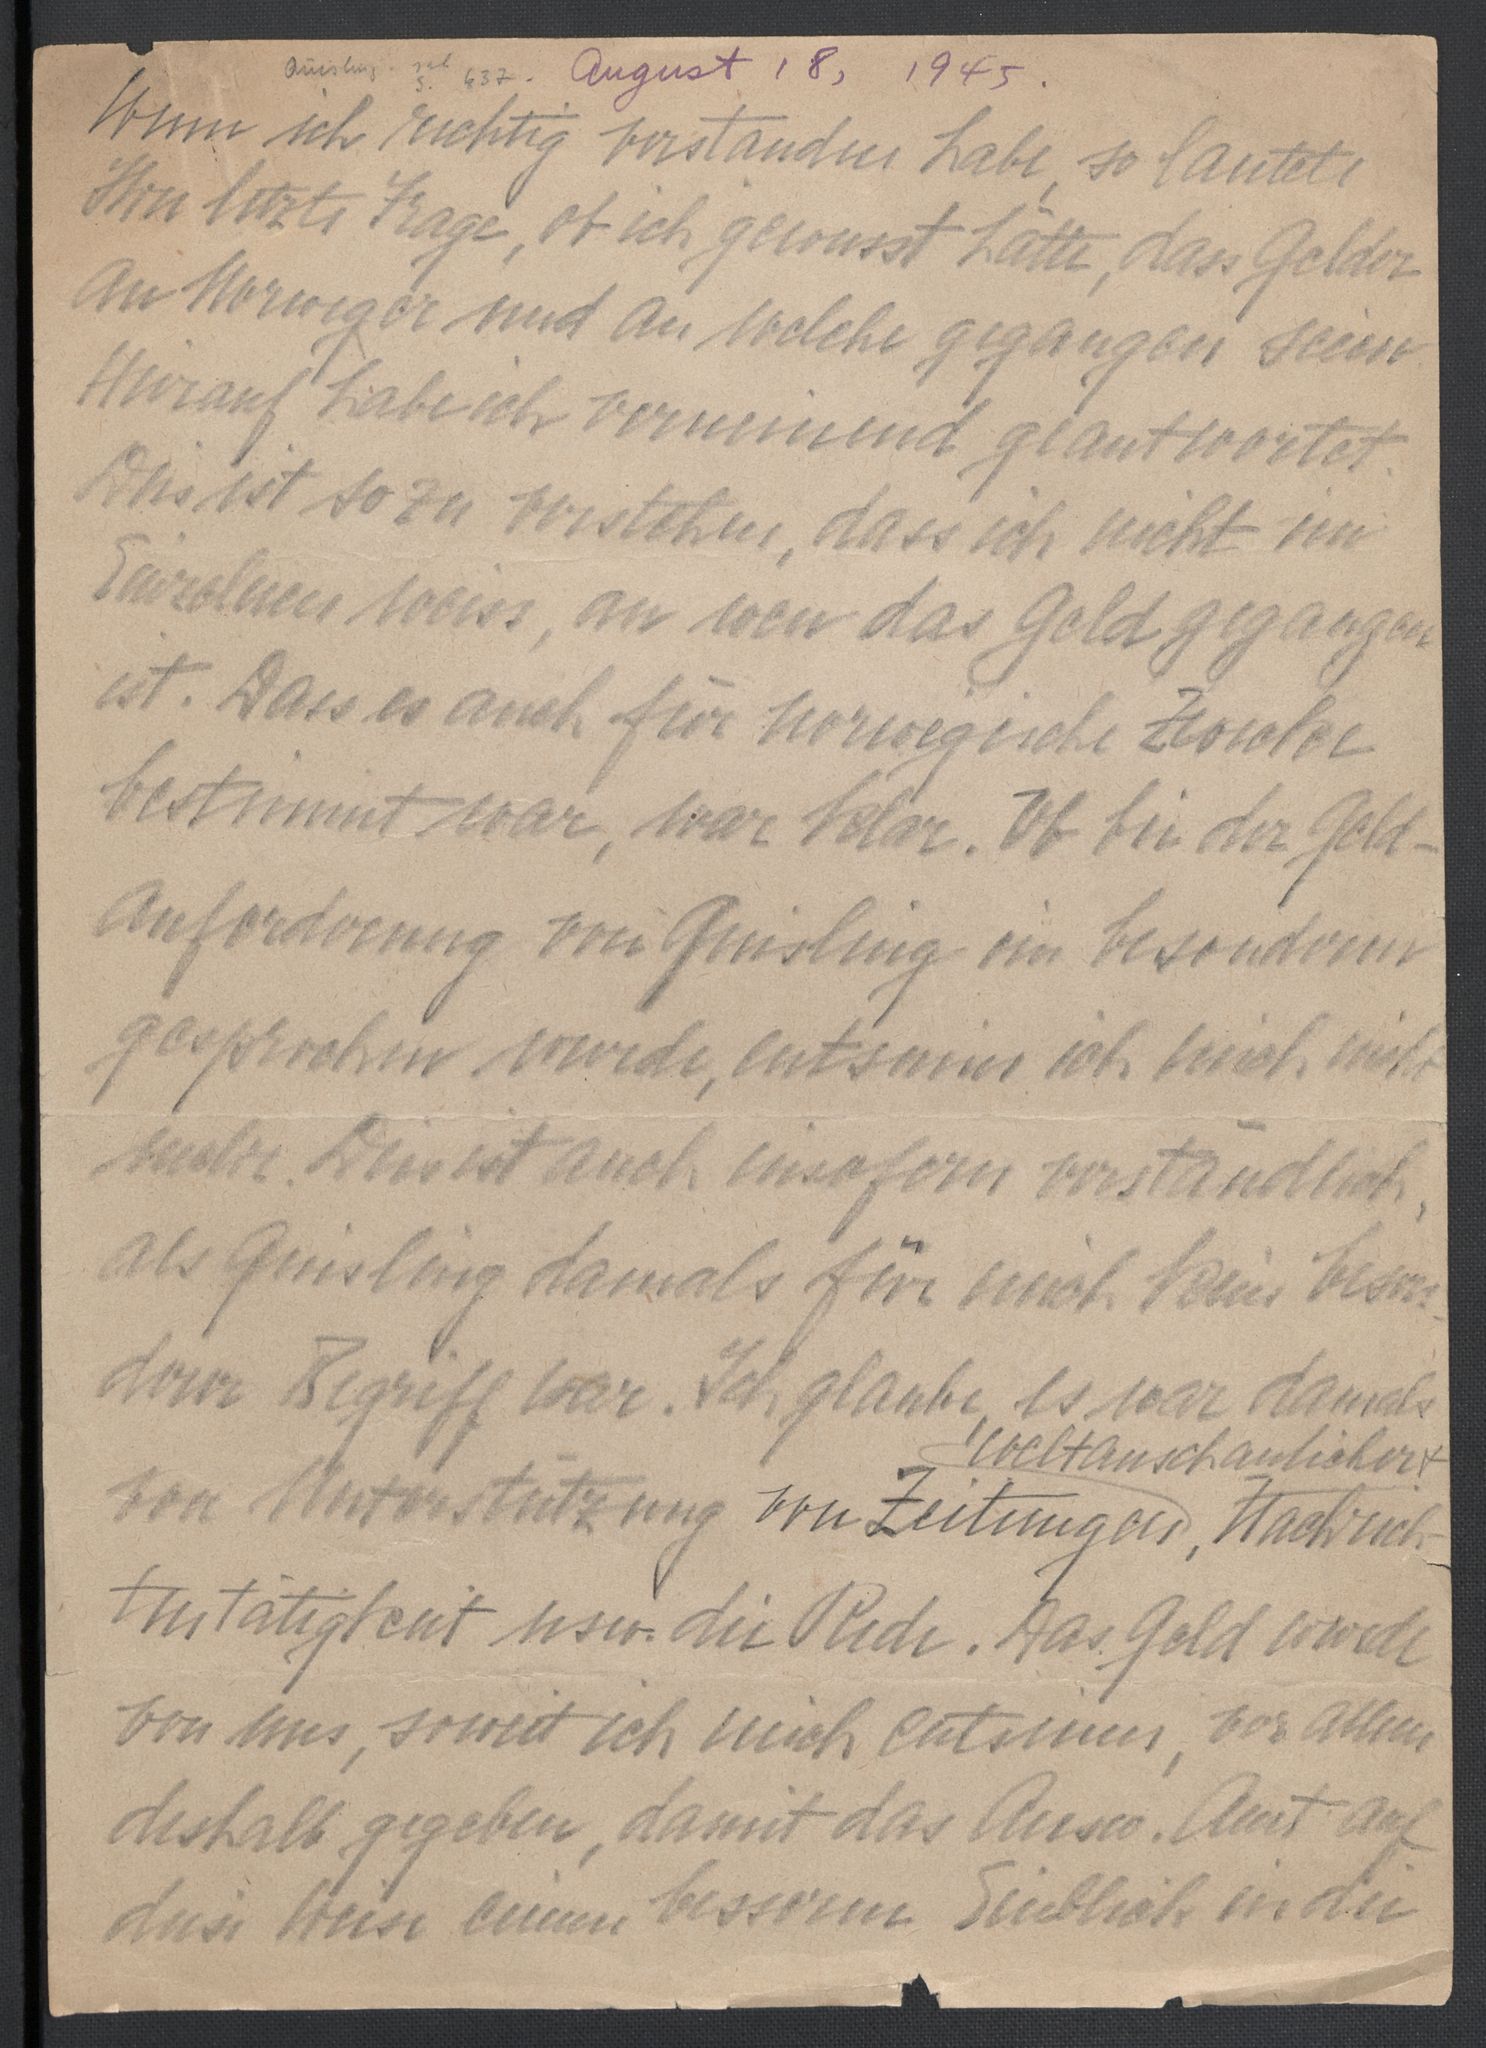 August 18, 1945.
Wenn ich richtig verstanden habe, so lautete
Ihre letzte Frage, ob ich gewusst hätte, dass Gelder
an Norweger und an welche gegangen seien.
Hierauf habe ich verneinend geantwortet.
Dies ist so zu verstehen, dass ich nicht im
Einzelnen weiss, an wen das Geld gegangen
ist. Dass es auch für norwegische Zwecke
bestimmt war, war klar. Ob bei der Geld-
anforderung von Quisling im besonderen
gesprochen wurde, entsinne ich mich nicht
mehr. Dies ist auch insofern verständlich,
als Quisling damals für mich kein beson-
derer Begriff war. Ich glaube, es war damals
weltanschaulicher
von Unterstützung von Zeitungen, Nachrich-
tentätigkeit usw. die Rede. Das Geld wurde
von uns, soweit ich mich entsinne, vor allem
deshalb gegeben, damit das Ausw. Amt auf
diese Weise einen besseren Einblick in die